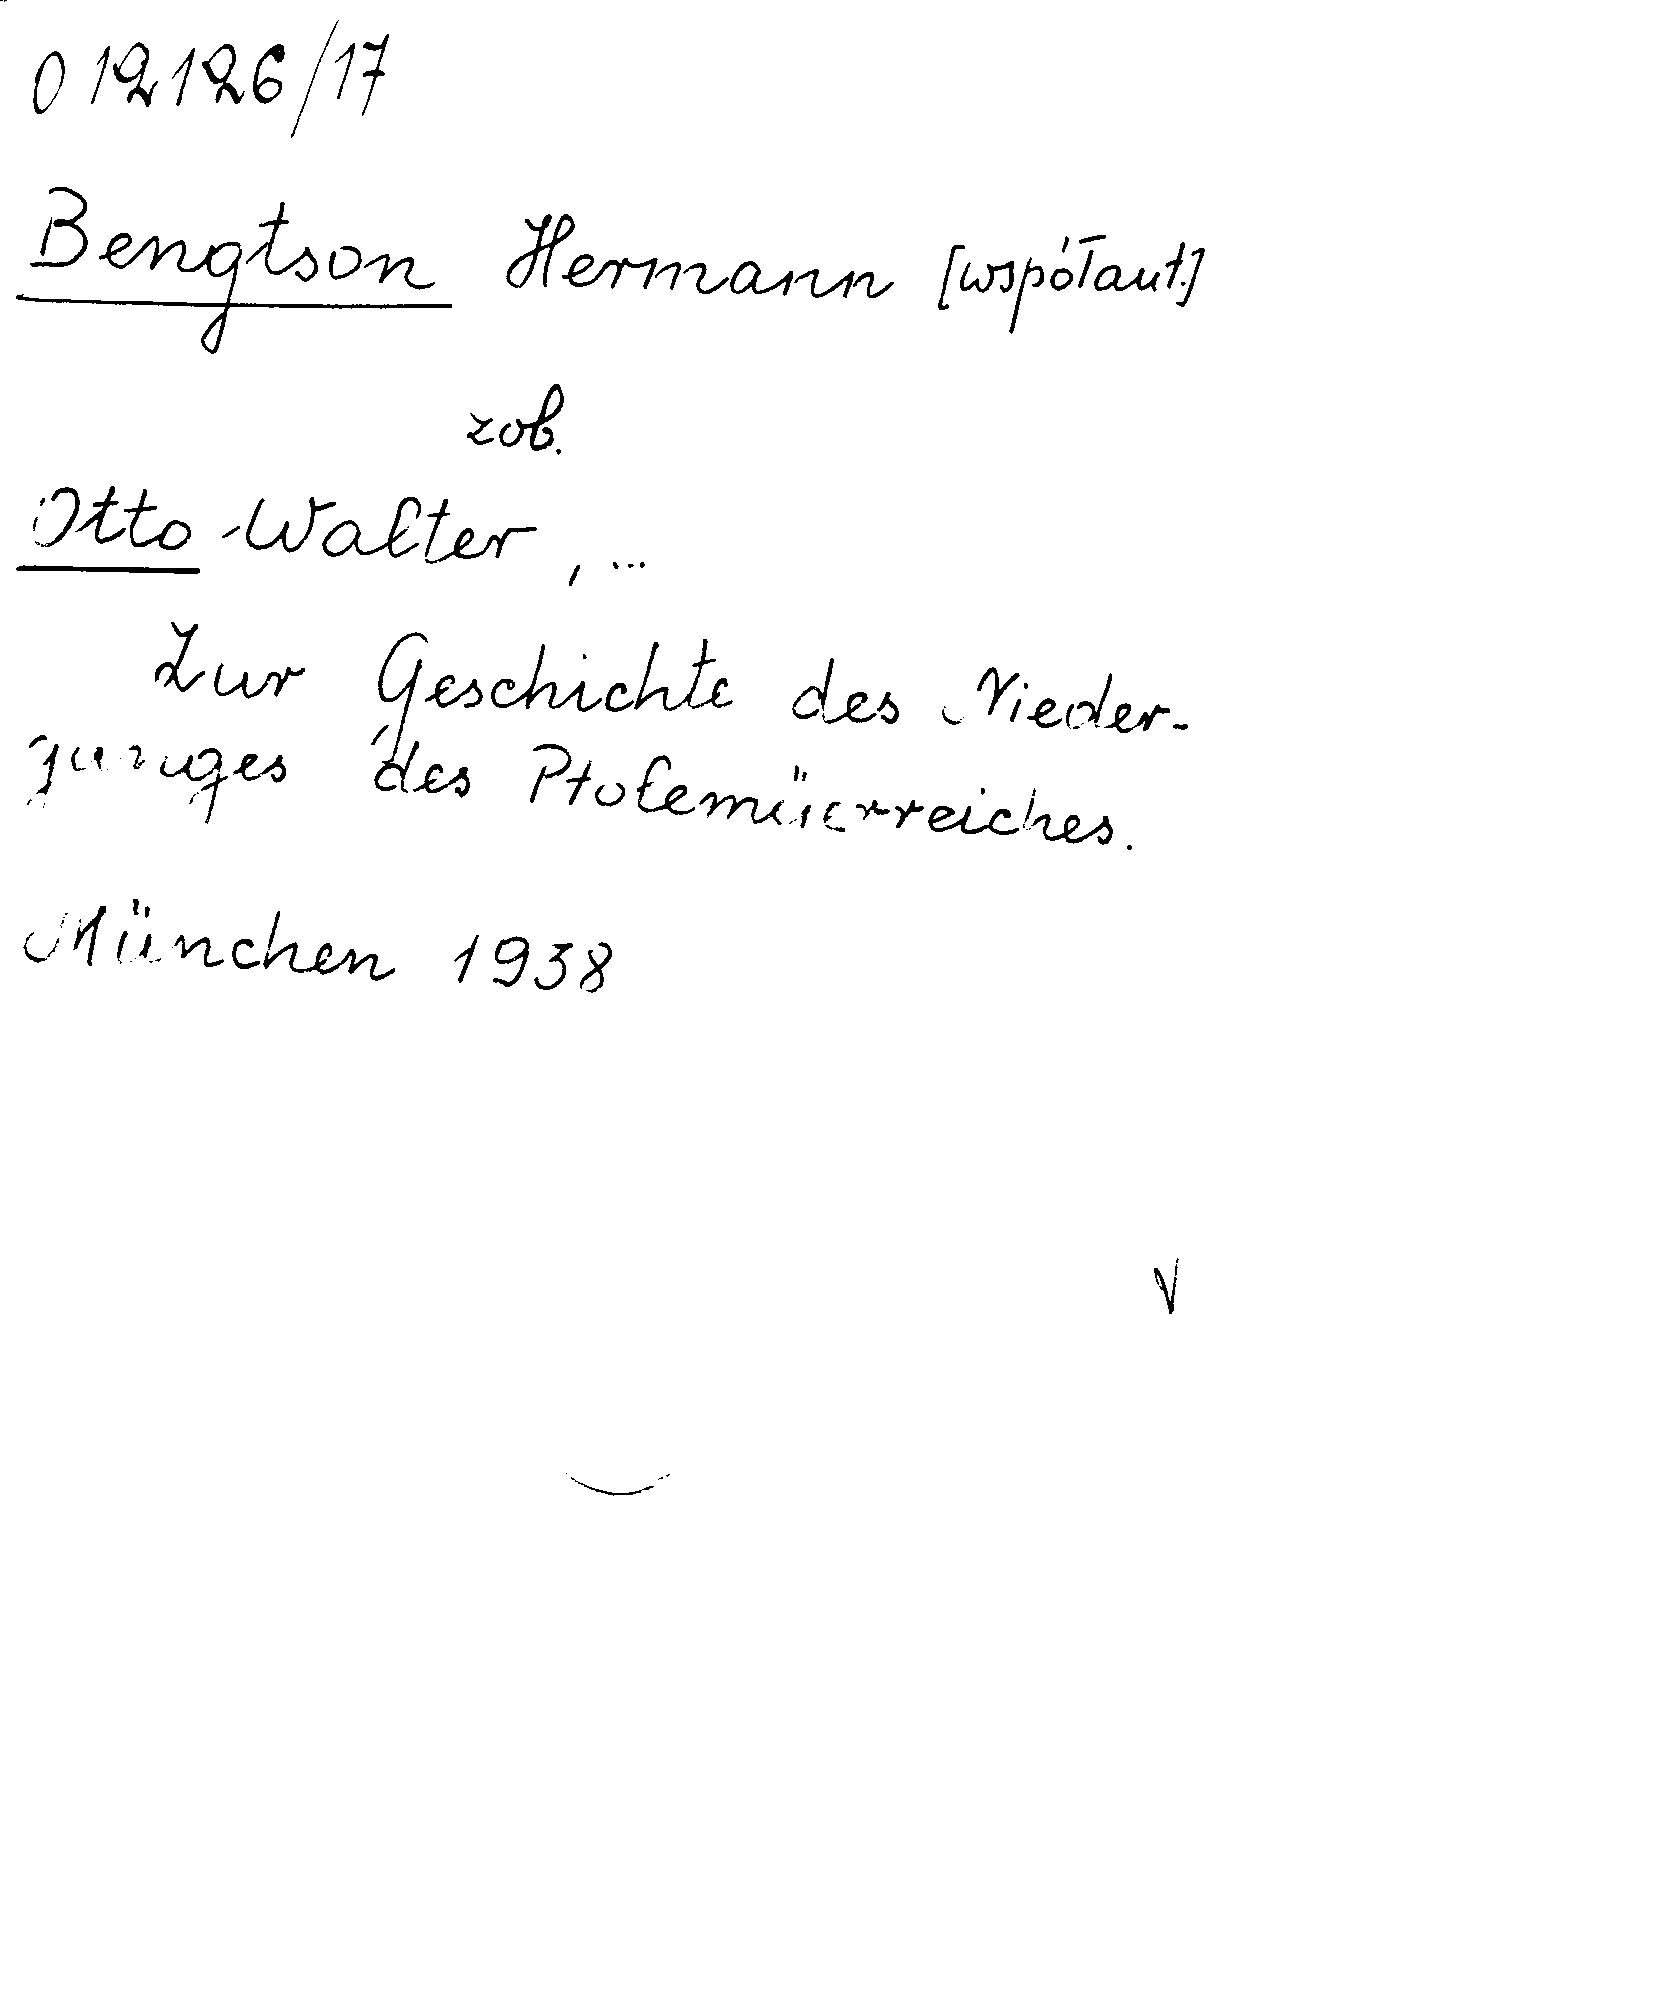 012126/17
Bengtson Hermann [współaut.]
zob.
Otto Walter, ...
Zur Geschichte des Nieder-
ganges des Ptolemäerreiches.
München 1938